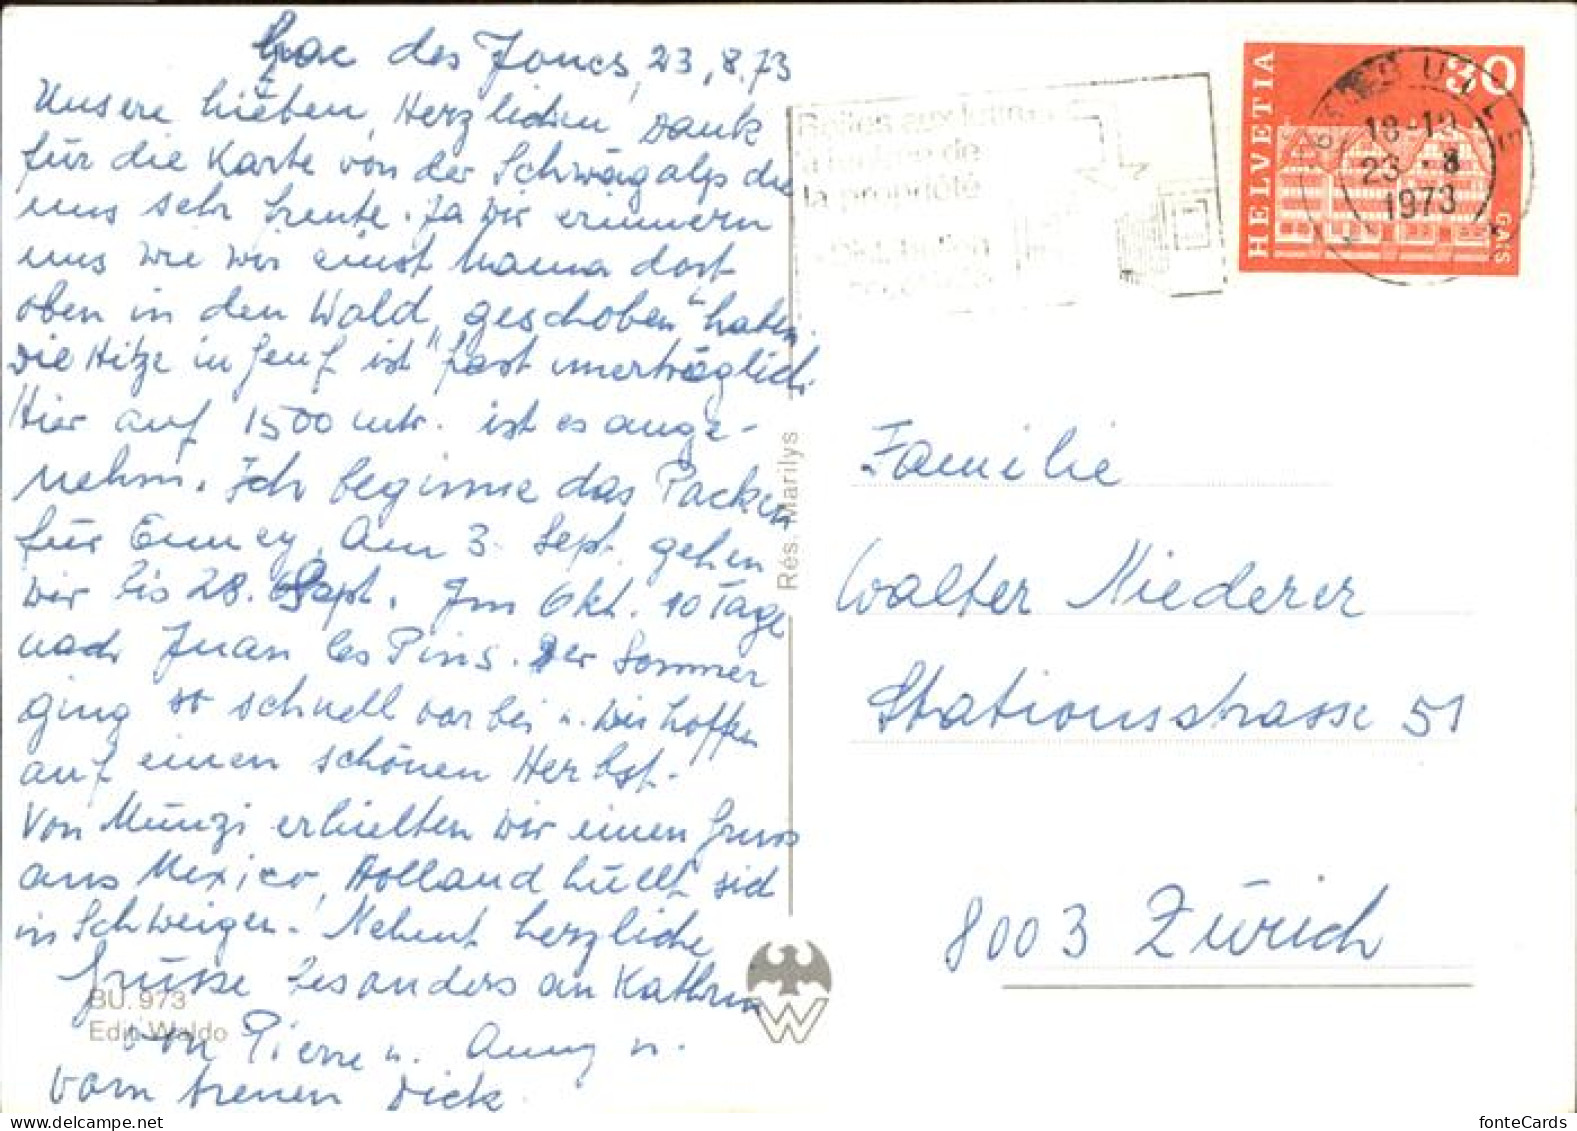 Lac des Joncs, 23.8.73
Unsere Lieben, Herzlichen Dank
für die Karte von der Schwägalp die
uns sehr freute. Ja wir erinnern
uns wie wir einst Mama dort
oben in den Wald „geschoben" haben.
Die Hitze in Genf ist fast unerträglich.
Hier auf 1500 mtr. ist es ange-
nehm. Ich beginne das Packen
für Enney. Am 3. Sept. gehen
wir bis 28. Sept. Im Okt. 10 Tage
nach Juan les Pins. Der Sommer
ging so schnell vorbei u. wir hoffen
auf einen schönen Herbst.
Von Munzi erhielten wir einen Gruss
aus Mexico, Holland hüllt sich
in Schweigen. Nehmt herzliche
Grüsse besonders an Kathrin
von Pierre u. Anny u.
vom treuen Dick
BU. 973
Edit. Waldo
Rés. Marilys
W
à l'entrée de
la propriété
HELVETIA
30
GAIS
18-19
23.-8
1973
Familie
Walter Niederer
Stationsstrasse 51
8003 Zürich
fonteCards